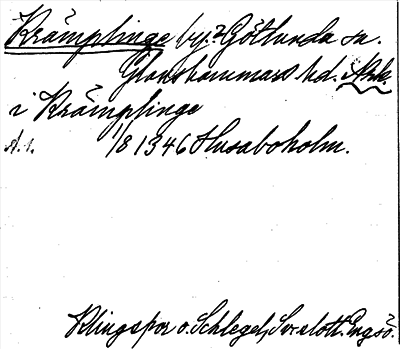 Krämplinge by? Götlunda sn.
Glanshammars hd. Nrk.
i Krämplinge
A. 1. 1/8 1346 Husaboholm.
Klingspor o. Schlegel, Sv. slott. Engsö.